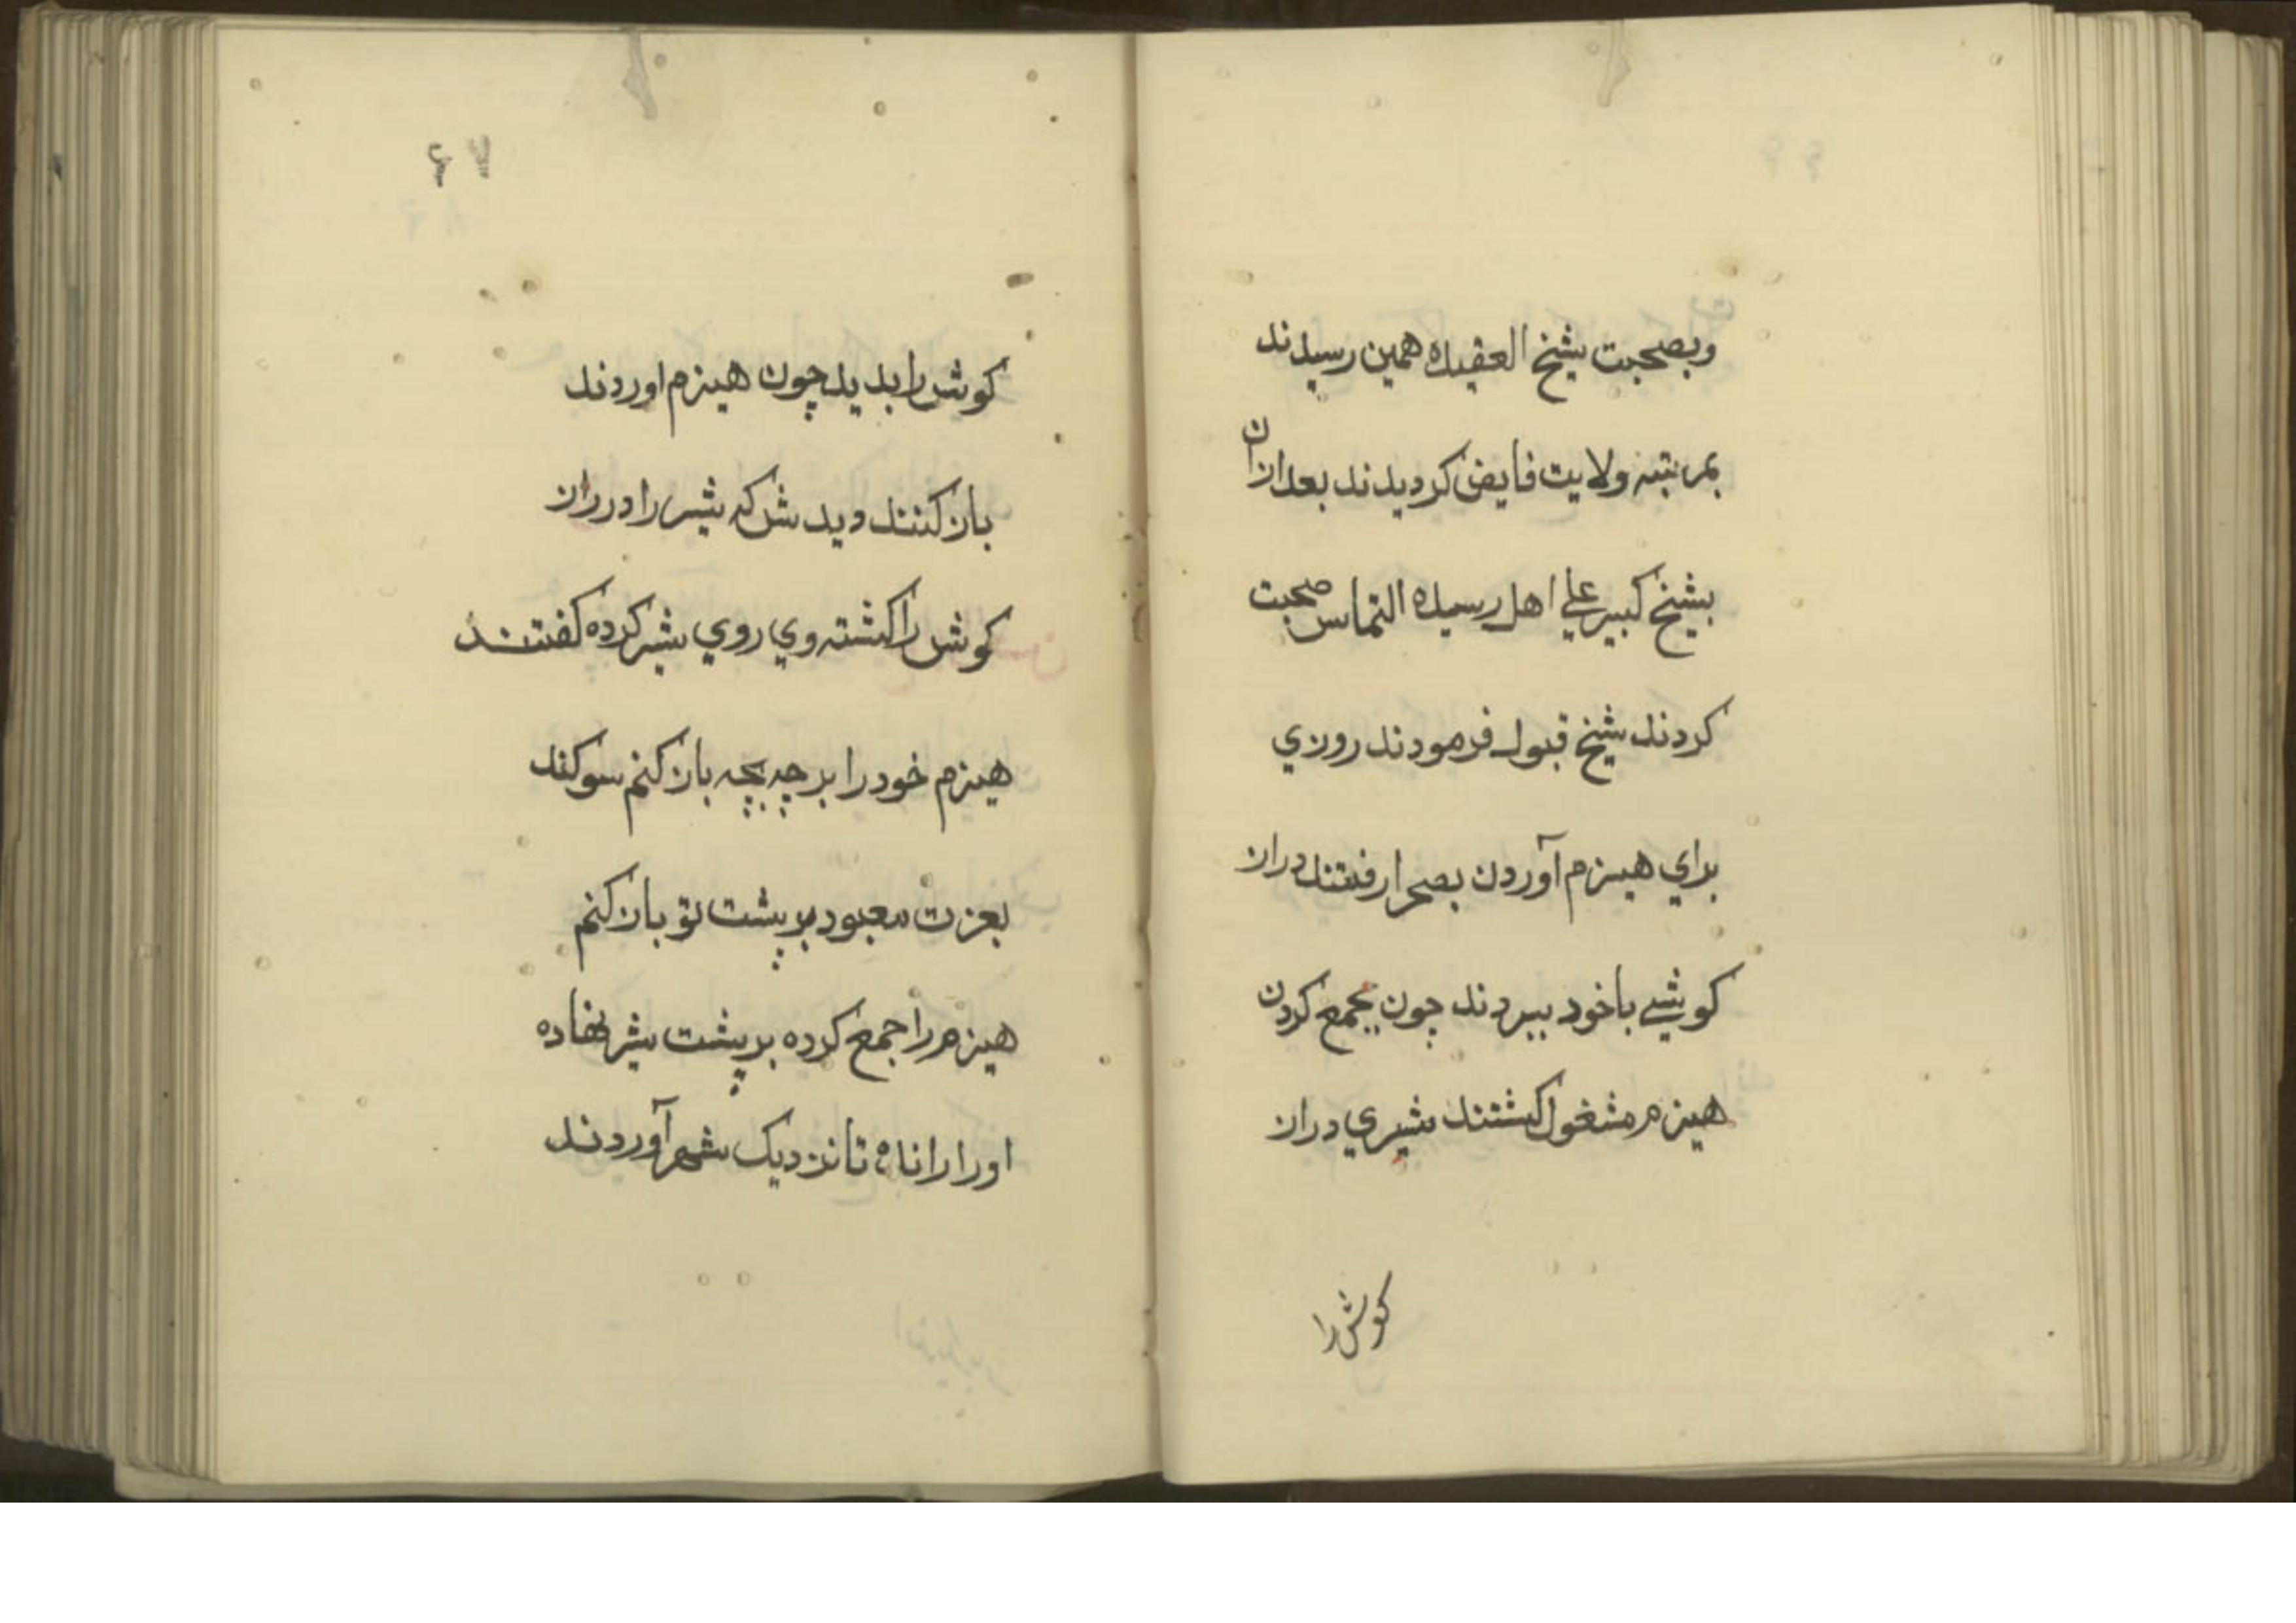 وبصحبت شيخ العقيده همين رسيدند
بمرتبه ولايت فايض كرديدند بعد ازان
بشيخ كبير علي اهل رسيده التماس صحبت
كردند شيخ قبول فرمودند روزي
براي هيزم آوردن بصحرا رفتند دران
كوشي باخود ببردند چون بجمع كردن
هيزم مشغول كشتند شيري دران
كوش را
كوش را بديد چون هيزم اوردند
بازكنند ديدش كه شير را درران
كوش را كشته وي روي بشير كرده كفتند
هيزم خود را برچه بچه باز كنم سوكند
بعزت معبود بر پشت تو باز كنم
هيزم را جمع كرده بر پشت شير نهاده
او را رانده تا نزديک شهر آوردند